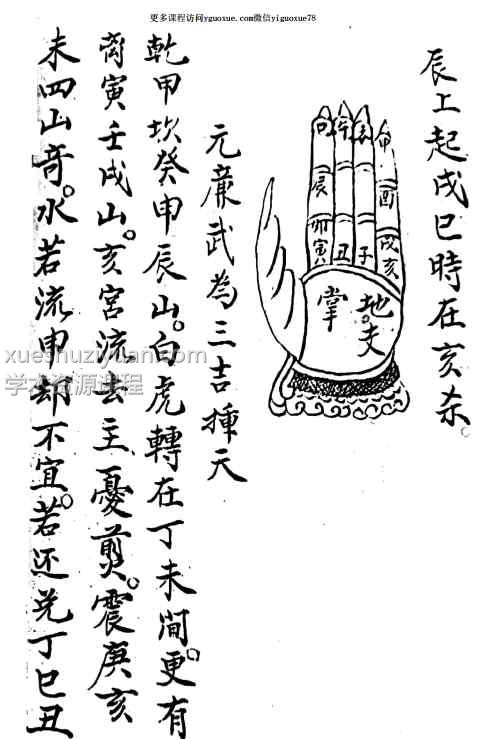 更多课程访问yguoxue.com微信yiguoxue78
辰上起戌巳時在亥杀。
巳午未申
辰酉
卯寅丑子戌亥
地支
掌
元廉武為三吉揷天
乾甲坎癸申辰山。白虎轉在丁未間。更有
离寅壬戌山。亥宮流去主憂煎。震庚亥
未四山奇。水若流申却不宜。若还兑丁巳丑
xueshuziyuan.com
学术资源课程